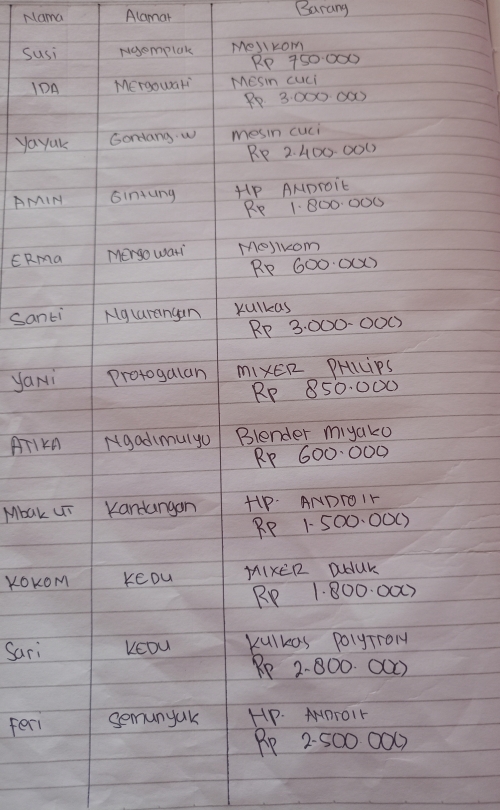 Nama Alamat Barang
Susi Ngemplak Mejikom
Rp 750.000
IDA Mergowati Mesin cuci
Rp 3.000.000
Yayuk Gontang.w mesin cuci
Rp 2.400.000
AMIN Gintung HP ANDROit
Rp 1.800.000
ERMa Mergowati Mejikom
Rp 600.000
Santi Nglarangan Kulkas
Rp 3.000.000
YaNi Protogalan MIXER PHILIPS
Rp 850.000
ATIKA Ngadimulyo Blender Miyako
Rp 600.000
Mbak UT Kandangan HP. ANDROIt
Rp 1.500.000
KOKOM KEDU MIXER Duduk
Rp 1.800.000
Sari KEDU Kulkas POLYTRON
Rp 2.800.000
Feri Gemunyuk HP. ANDROIt
Rp 2.500.000